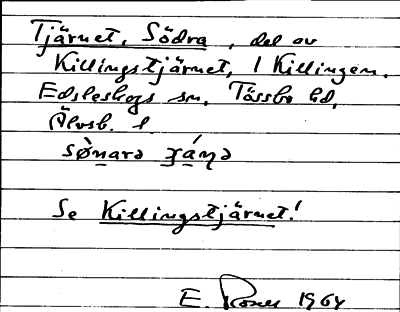 Tjärnet, Södra, del av
Killingstjärnet, l Killingen.
Edsleskogs sn. Tössbo hd.
Älvsb. l.
Se Killingstjärnet!
E. 1964